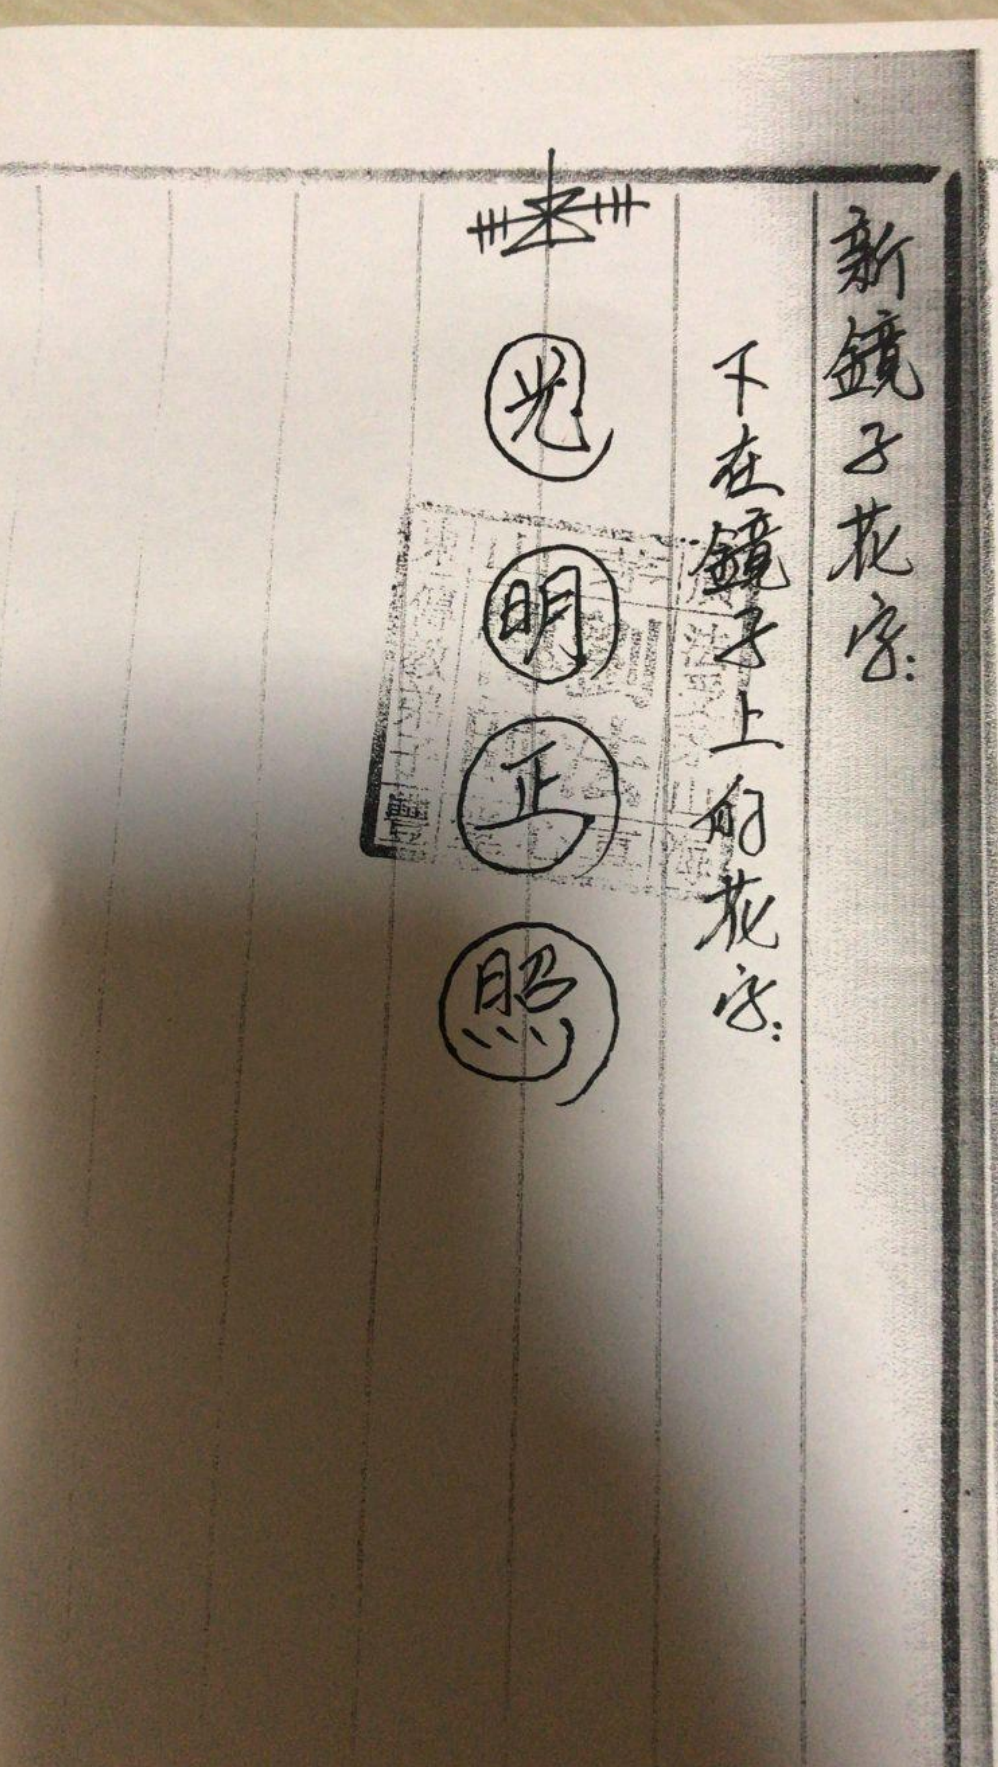 新鏡子花字：
下在鏡子上的花字：
光明正照